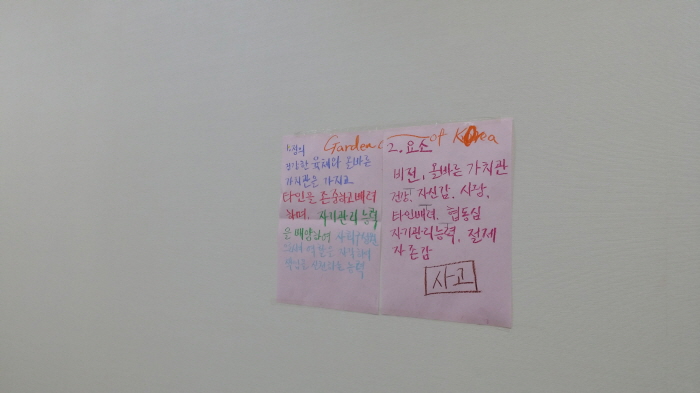 Garden of Korea
1. 정의
건강한 육체와 올바른
가치관을 가지고
타인을 존중하고 배려
하며, 자기관리능력
을 배양하여
능력
2. 요소
비전, 올바른 가치관
건강, 자신감, 사랑,
타인배려, 협동심
자기관리능력, 절제
자존감
사고